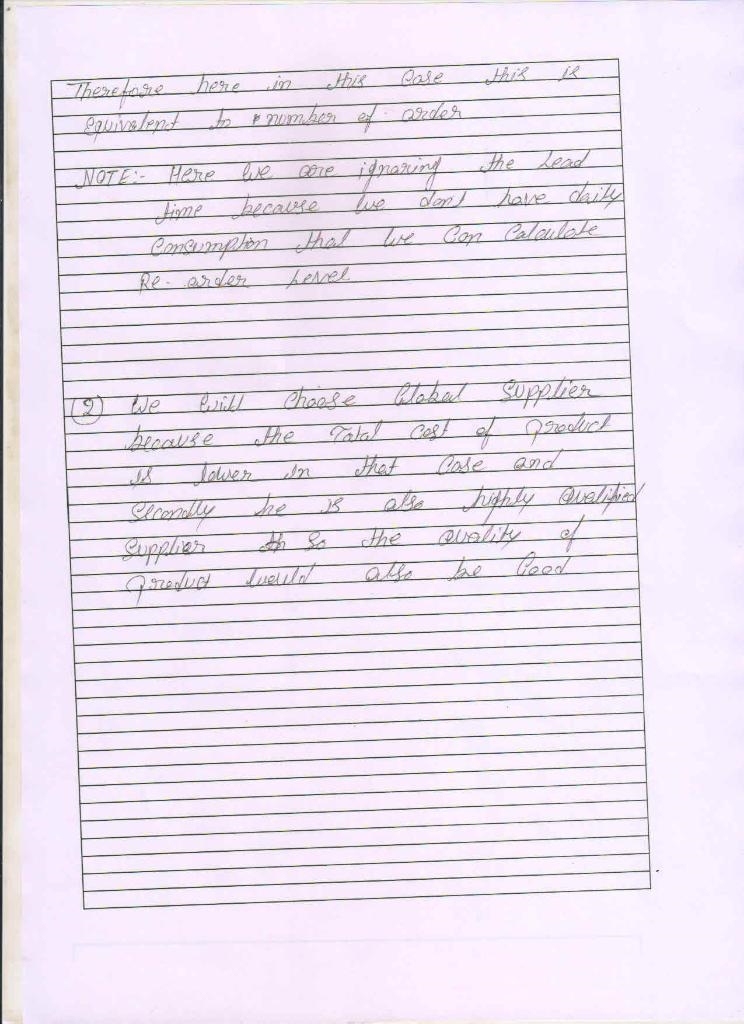 Therefore here in this Case this is
Equivalent to number of order
NOTE:- Here we are ignoring the Lead
time because we don't have daily
Consumption that we Can Calculate
Re-order Level
(2) We will choose Global Supplier
because the Total Cost of product
is lower in that Case and
Secondly he is also highly Qualified
Supplier So the Quality of
product would also be Good